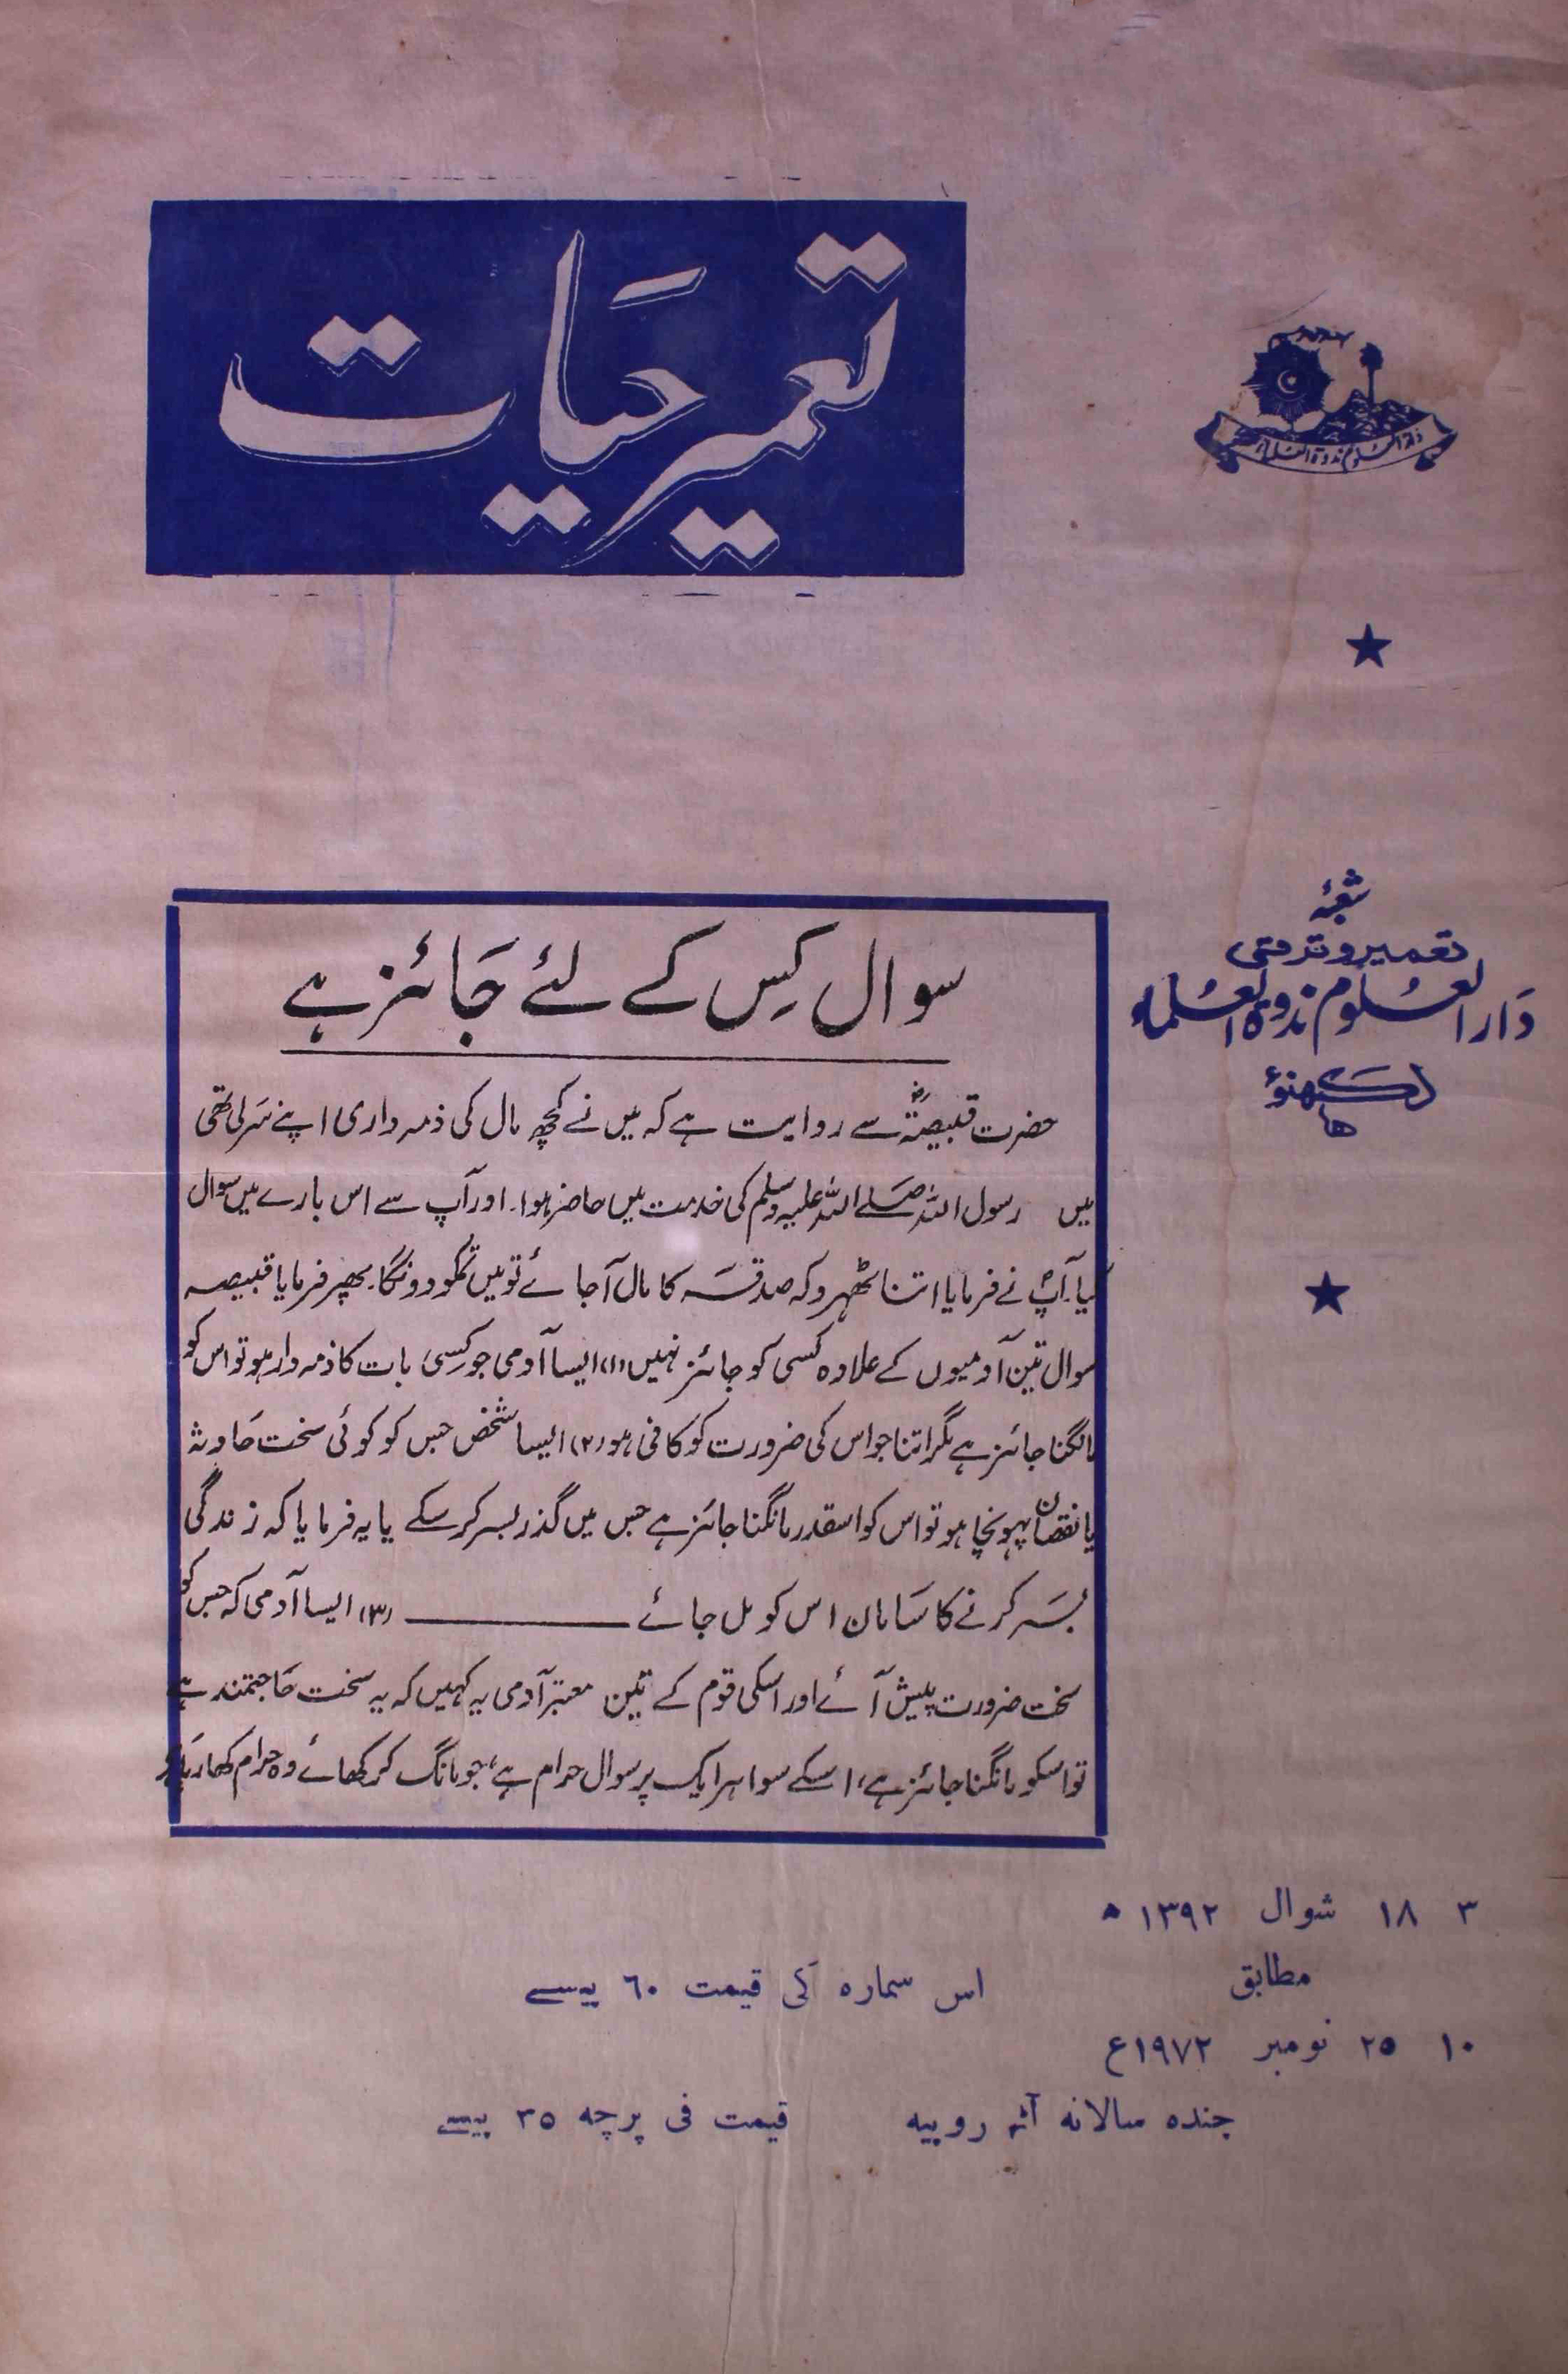 تعمیر حیات
دارالعلوم ندوۃ العلماء
شعبۂ
تعمیر و ترقی
دَارالعُلوم ندوۃ العُلماء
لکھنؤ
سوال کِس کے لئے جَائز ہے
حضرت قبیصہؓ سے روایت ہے کہ میں نے کچھ مال کی ذمہ داری اپنے سَر لی تھی
میں رسول اللہ صَلے اللہ علیہ وسلم کی خدمت میں حاضر ہوا۔ اور آپ سے اس بارے میں سوال
کیا۔ آپؐ نے فرمایا اتنا ٹھہرو کہ صدقہ کا مال آجائے تو میں تمکو دونگا۔ پھر فرمایا قبیصہ
سوال تین آدمیوں کے علاوہ کسی کو جائز نہیں (۱) ایسا آدمی جو کِسی بات کا ذمہ دار ہو تو اس کو
مانگنا جائز ہے مگر اتنا جو اس کی ضرورت کو کافی ہو (۲) ایسا شخص جس کو کوئی سخت حَادثہ
یا نقصان پہونچا ہو تو اس کو اسقدر مانگنا جائز ہے جس میں گذر بسر کر سکے یا یہ فرمایا کہ زندگی
بَسر کرنے کا سَامان اس کو مل جائے ــــــــــ (۳) ایسا آدمی کہ جس کو
سخت ضرورت پیش آئے اور اسکی قوم کے تین معتبر آدمی یہ کہیں کہ یہ سخت حَاجتمند ہے
تو اسکو مانگنا جائز ہے، اسکے سوا ہر ایک پر سوال حرام ہے، جو مانگ کر کھائے وہ حرام کھا رہَا ہے
۳ ۱۸ شوال ۱۳۹۲ھ
مطابق
اس شمارہ کی قیمت ۶۰ پیسے
۱۰ ۲۵ نومبر ۱۹۷۲ع
چندہ سالانہ آٹھ روپیہ
قیمت فی پرچہ ۳۵ پیسے